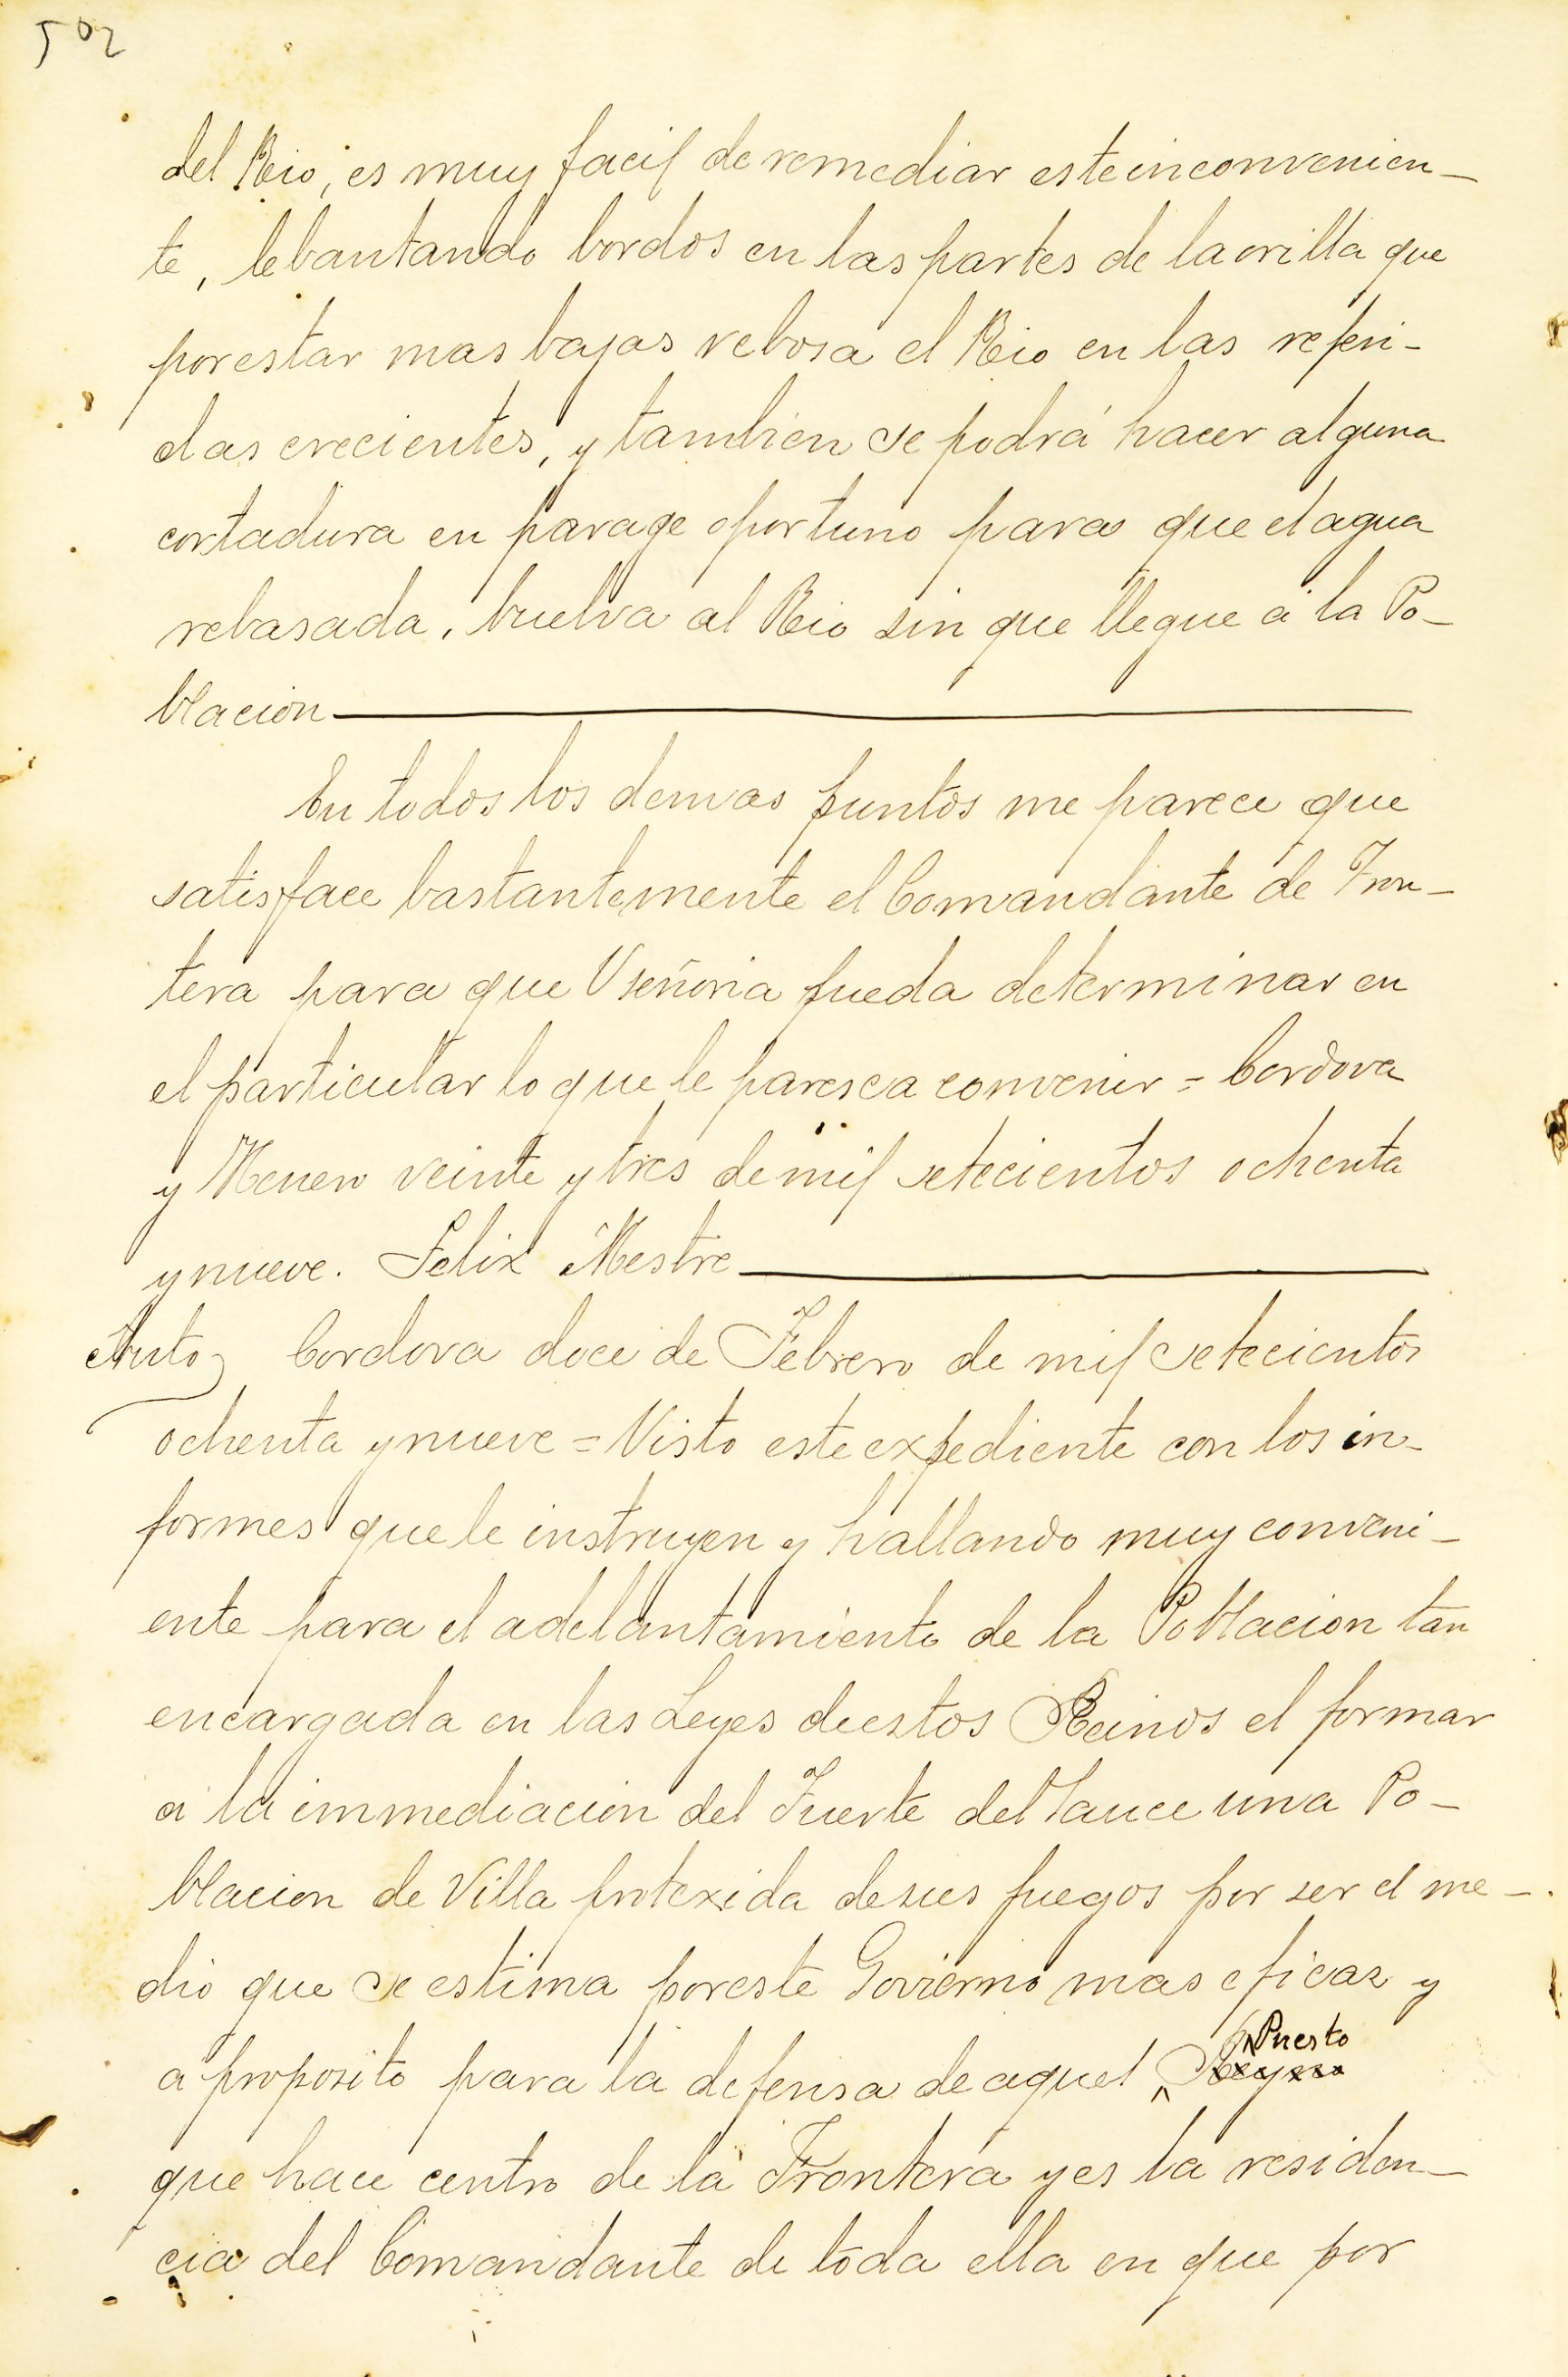 502
del Rio, es muy facil de remediar este inconvenien-
te, lebantando bordos en las partes de la orilla que
por estar mas bajas rebosa el Rio en las referi-
das crecientes, y tambien se podrá hacer alguna
cortadura en parage oportuno para que el agua
rebasada, buelva al Rio sin que llegue á la Po-
blacion
En todos los demas puntos me parece que
satisface bastantemente el Comandante de Fron-
tera para que Useñoria pueda determinar en
el particular lo que le paresca convenir = Cordova
y Henero veinte y tres de mil setecientos ochenta
y nueve. Felix Mestre
Auto Cordova doce de Febrero de mil setecientos
ochenta y nueve = Visto este expediente con los in-
formes que le instruyen y hallando muy conveni-
ente para el adelantamiento de la Poblacion tan
encargada en las Leyes de estos Reinos el formar
a la immediacion del Fuerte del Sauce una Po-
blacion de Villa protexida de sus fuegos por ser el me-
dio que se estima por este Govierno mas eficaz y
a proposito para la defensa de aquel Puesto
que hace centro de la Frontera y es la residen-
cia del Comandante de toda ella en que por